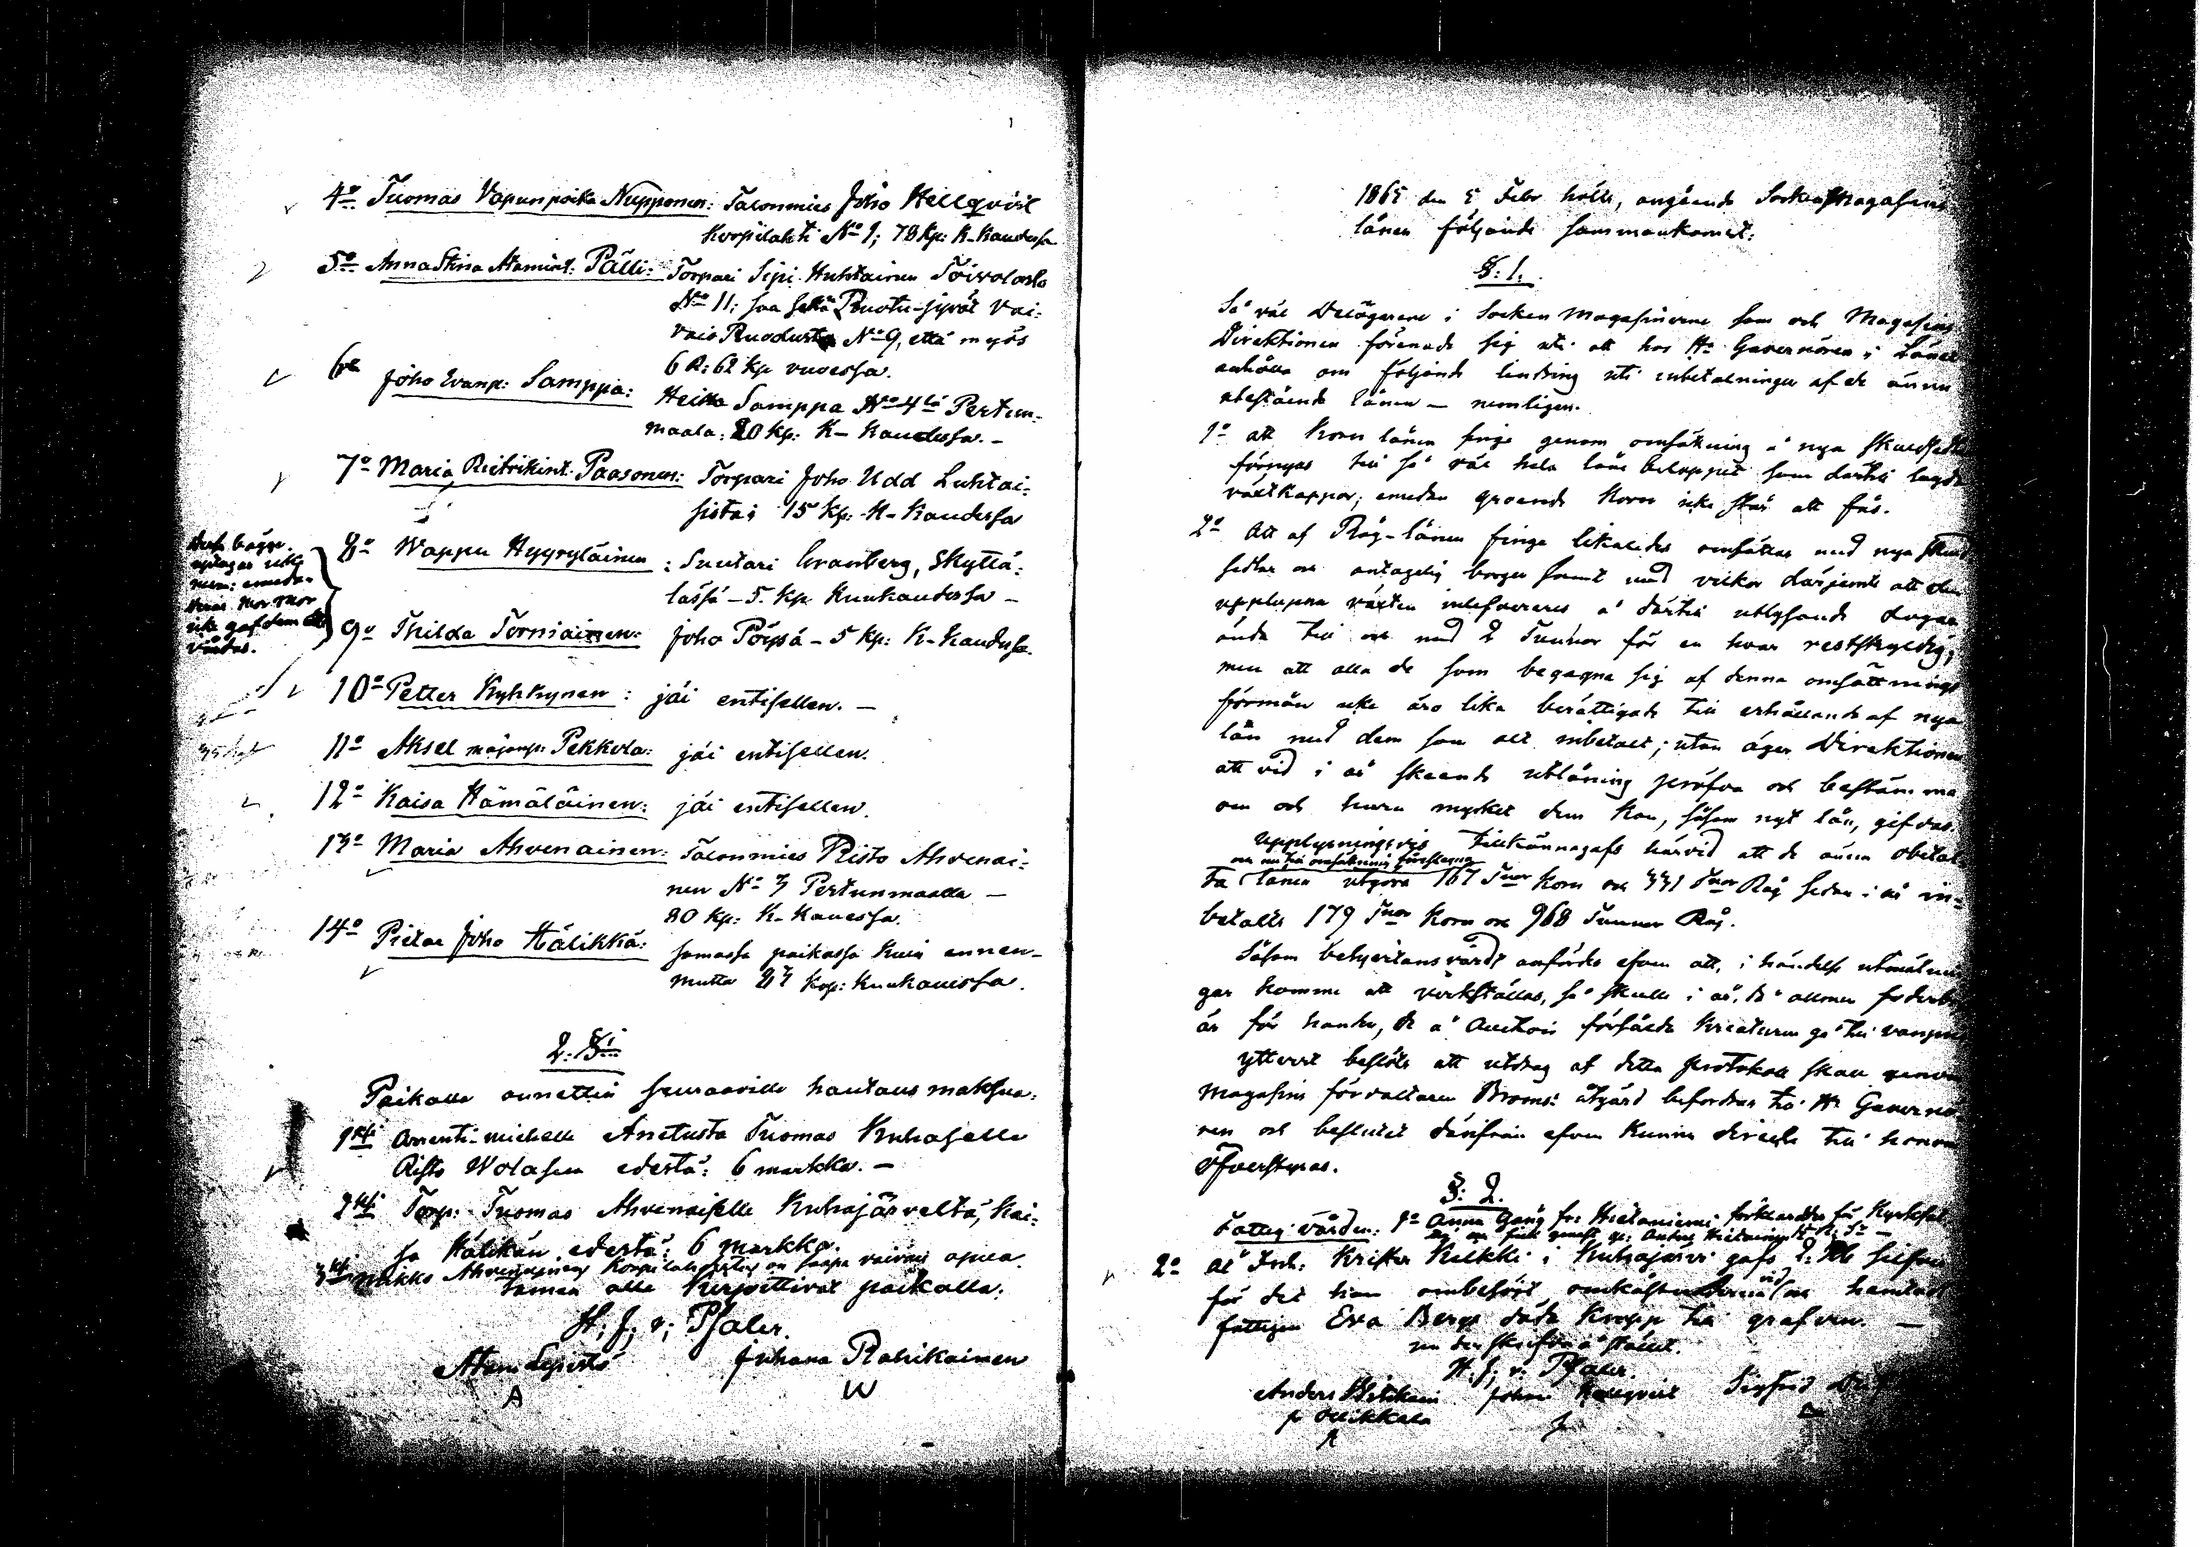 4º Tuomas Vapunpoika Nupponen: Talonmies Joho Hellqvist
Korpilahti Nº 1; 78 Kp: K-Kaudessa
5º Anna Stina Atamint: Pälli: Torpari Sipi Huhtainen Toivolasta
Nº 11; saa sekä Ruotu-jyvät Vai-
vais Ruodusta Nº 9, että myös
6 R: 62 Kp vuoessa.
6º Joho Evanp: Samppa: Heikki Samppa Nº 4 lä Pertun-
maala: 20 Kp: K-Kaudessa. –
7º Maria Pietrikint: Paasonen: Torpari Joho Udd Luhtai-
sista; 15 Kp: K-Kaudessa
8º Wappu Hyyryläinen: Suutari Granberg, Skyttä-
lässä – 5. Kp Kuukaudessa –
9º Thilda Torniainen: Joho Pöysä – 5 Kp: K-Kaudessa.
10º Petter Kyhkynen: jäi entisellen. –
11º Aksel majanp: Pekkola: jäi entisellen.
12º Kaisa Hämäläinen: jäi entisellen.
13º Maria Ahvenainen: Talonmies Risto Ahvenai-
nen Nº 3 Pertunmaalla –
80 Kp: K-Kauessa.
14º Pietar Joho Hälikkä: samassa paikassa kuin ennen-
mutta 83 Kop: Kuukauessa.
2. §:i
Paikalla annettiin seuraaville hautaus maksua:
1ksi Arrenti-miehelle Anetusta Tuomas Kuhaselle
Risto Wolasen edestä: 6 markka. –
2ksi Torp: Tuomas Ahvenaiselle Kuhajärveltä, Kai-
sa Hälikän edestä: 6 markka.
3ksi Mikko Ahvenainen Korpilahdesta on saapa vaivais apua.
Tämän alle kirjoittivat paikalla.
H. J. v: Pfaler.
Atam Lepistö Juhana Rahikainen
A W
1865 den 5 Febr hölls, angående Sockenmagasins
lånen följande sammankomst:
§: 1.
Så väl Delägarene i Socken Magasinerne som och Magasins
Direktionen förenade sig uti att hos Hr Guvernören i Länet
anhålla om följande lindring uti inbetalningen af de ännu
utestående lånen – nemligen.
1º att Korn lånen finge genom omsättning i nya skuldsedlar
förnyas till så väl hela låne beloppet som dertill lagda
växtkappor; emedan groende Korn icke står att fås.
2º Att af Råg-lånen finge likaledes omsättas med nya skuld
sedlar och antaglig borgen samt med vilkor därjemte att den
upplupna växten inlefvereras å dertill utlysande dagar
ända till och med 2 Tunnor för en hvar restskyldig;
men att alla de som begagna sig af denna omsättnings
förmån icke äro lika berättigade till erhållande af nya
lån med dem som allt inbetalt; utan äger Direktionen
att vid i år skeende utlåning pröfva och bestämma
om och huru mycket dem kan, såsom nytt lån, gifvas.
Upplysningsvis tillkännagafs härvid att de ännu obetal-
och nu till omsättning föreslagna
ta lånen utgöra 167 Tnor Korn och 331 Tnor Råg sedan i år in-
betalts 179 Tnor Korn och 968 Tunnor Råg.
Såsom behjertansvärdt anfördes äfven att, i händelse utmätnin
gar komme att verkställas, så skulle i år, då allmen foderbrist
är för handen, de å Auction försålde Kreaturen gå till vanpris
Ytterst beslöts att utdrag af detta protokoll skall genom
Magasins förvaltaren Broms: åtgärd befordras till Hr Guvernö-
ren och beslutet därifrån äfven kunna direkte till honom
öfverstyras.
§: 2.
Fattig vården: 1º Anna Gang fr: Hietaniemi
2º åt Inh: Krister Kelkki i Kuhajärvi gafs 1: Rb silfver
för det han ombesörjt omkostnaderna vid hemtade
fattigen Eva Bergs döda Kropp till grafven. –
underskrifva å stället.
H. J. v: Pfaler.
Anders Pitkänen Johan Hellqvist Sigfrid
p Ollikkala